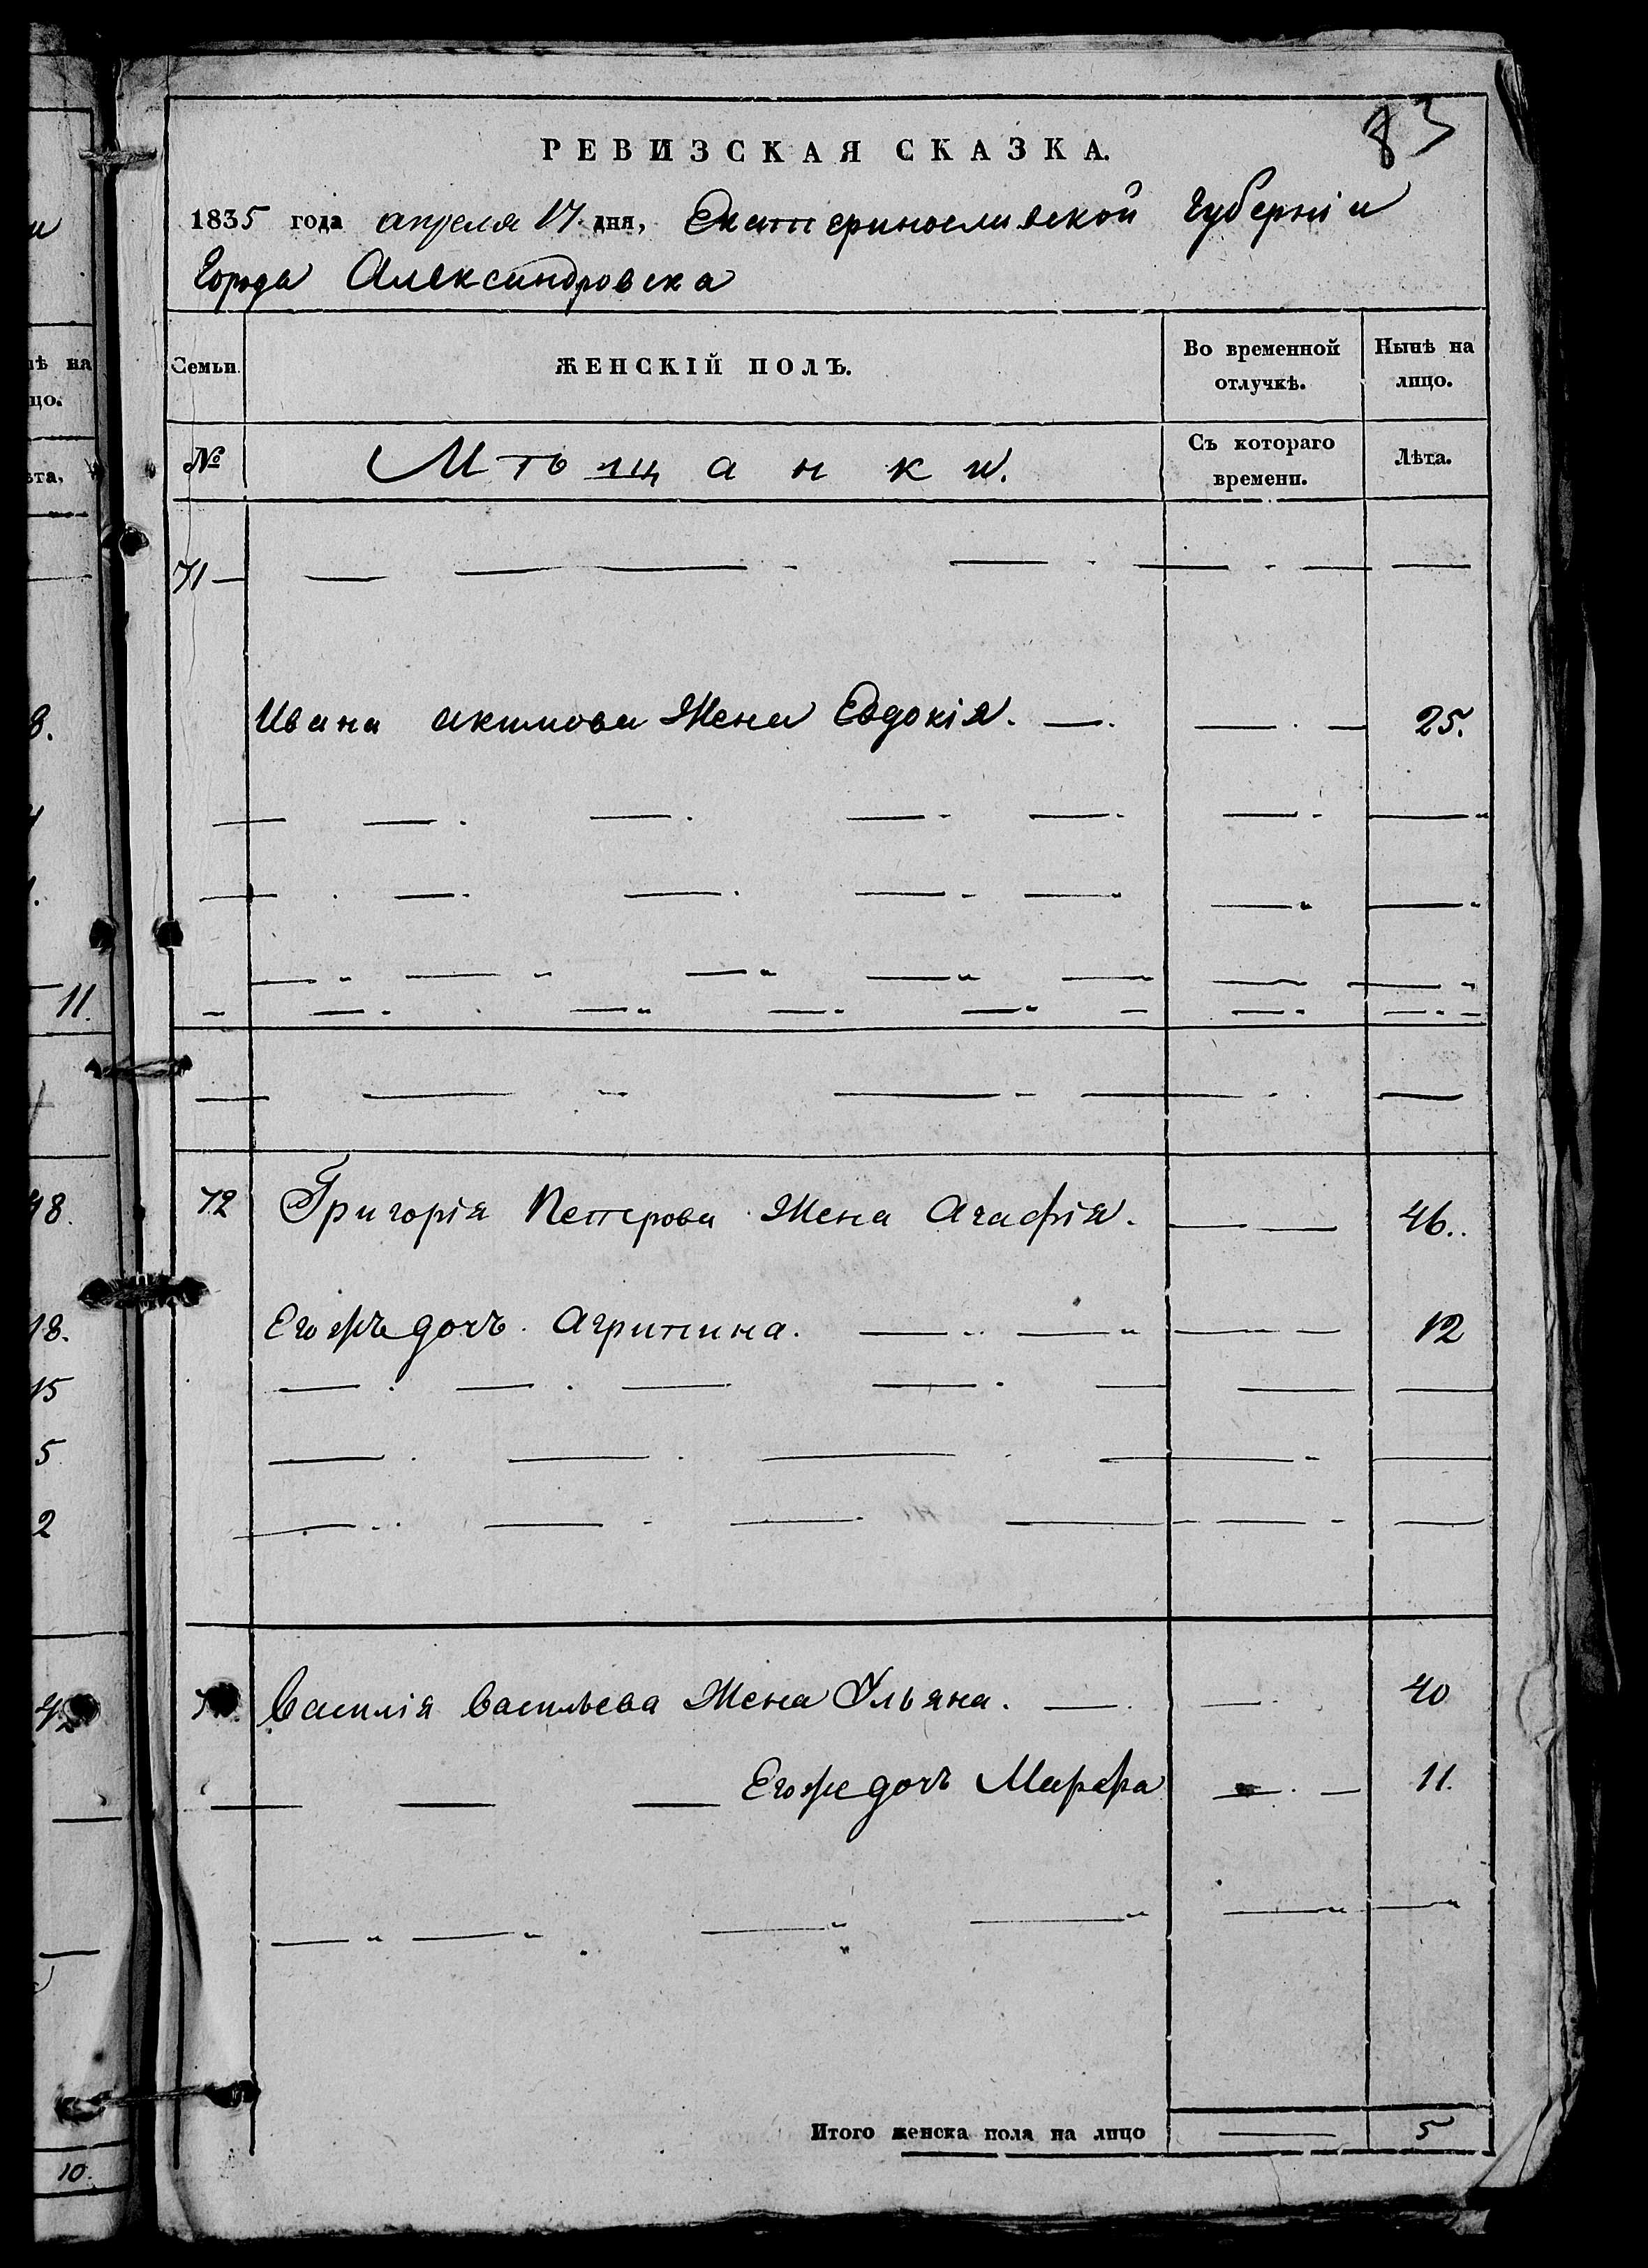 83
РЕВИЗСКАЯ СКАЗКА.
1835 года апреля 17 дня, Екатеринославской Губерніи
Города Александровска
Семьи
ЖЕНСКІЙ ПОЛЪ.
Во временной отлучкѣ.
Нынѣ на лицо.
№
Мѣщанки.
Съ котораго времени.
Лѣта.
71
Ивана Акимова Жена Евдокія. 25.
72 Григорія Петрова Жена Агафія. 46..
Егожъ дочь Агрипина. 12
Василія Васильева Жена Ульяна. 40
Егоже дочь Марфа 11.
Итого женска пола на лицо 5
нѣ на
цо.
ѣта,
8.
11.
48.
18.
15
5
2
10.